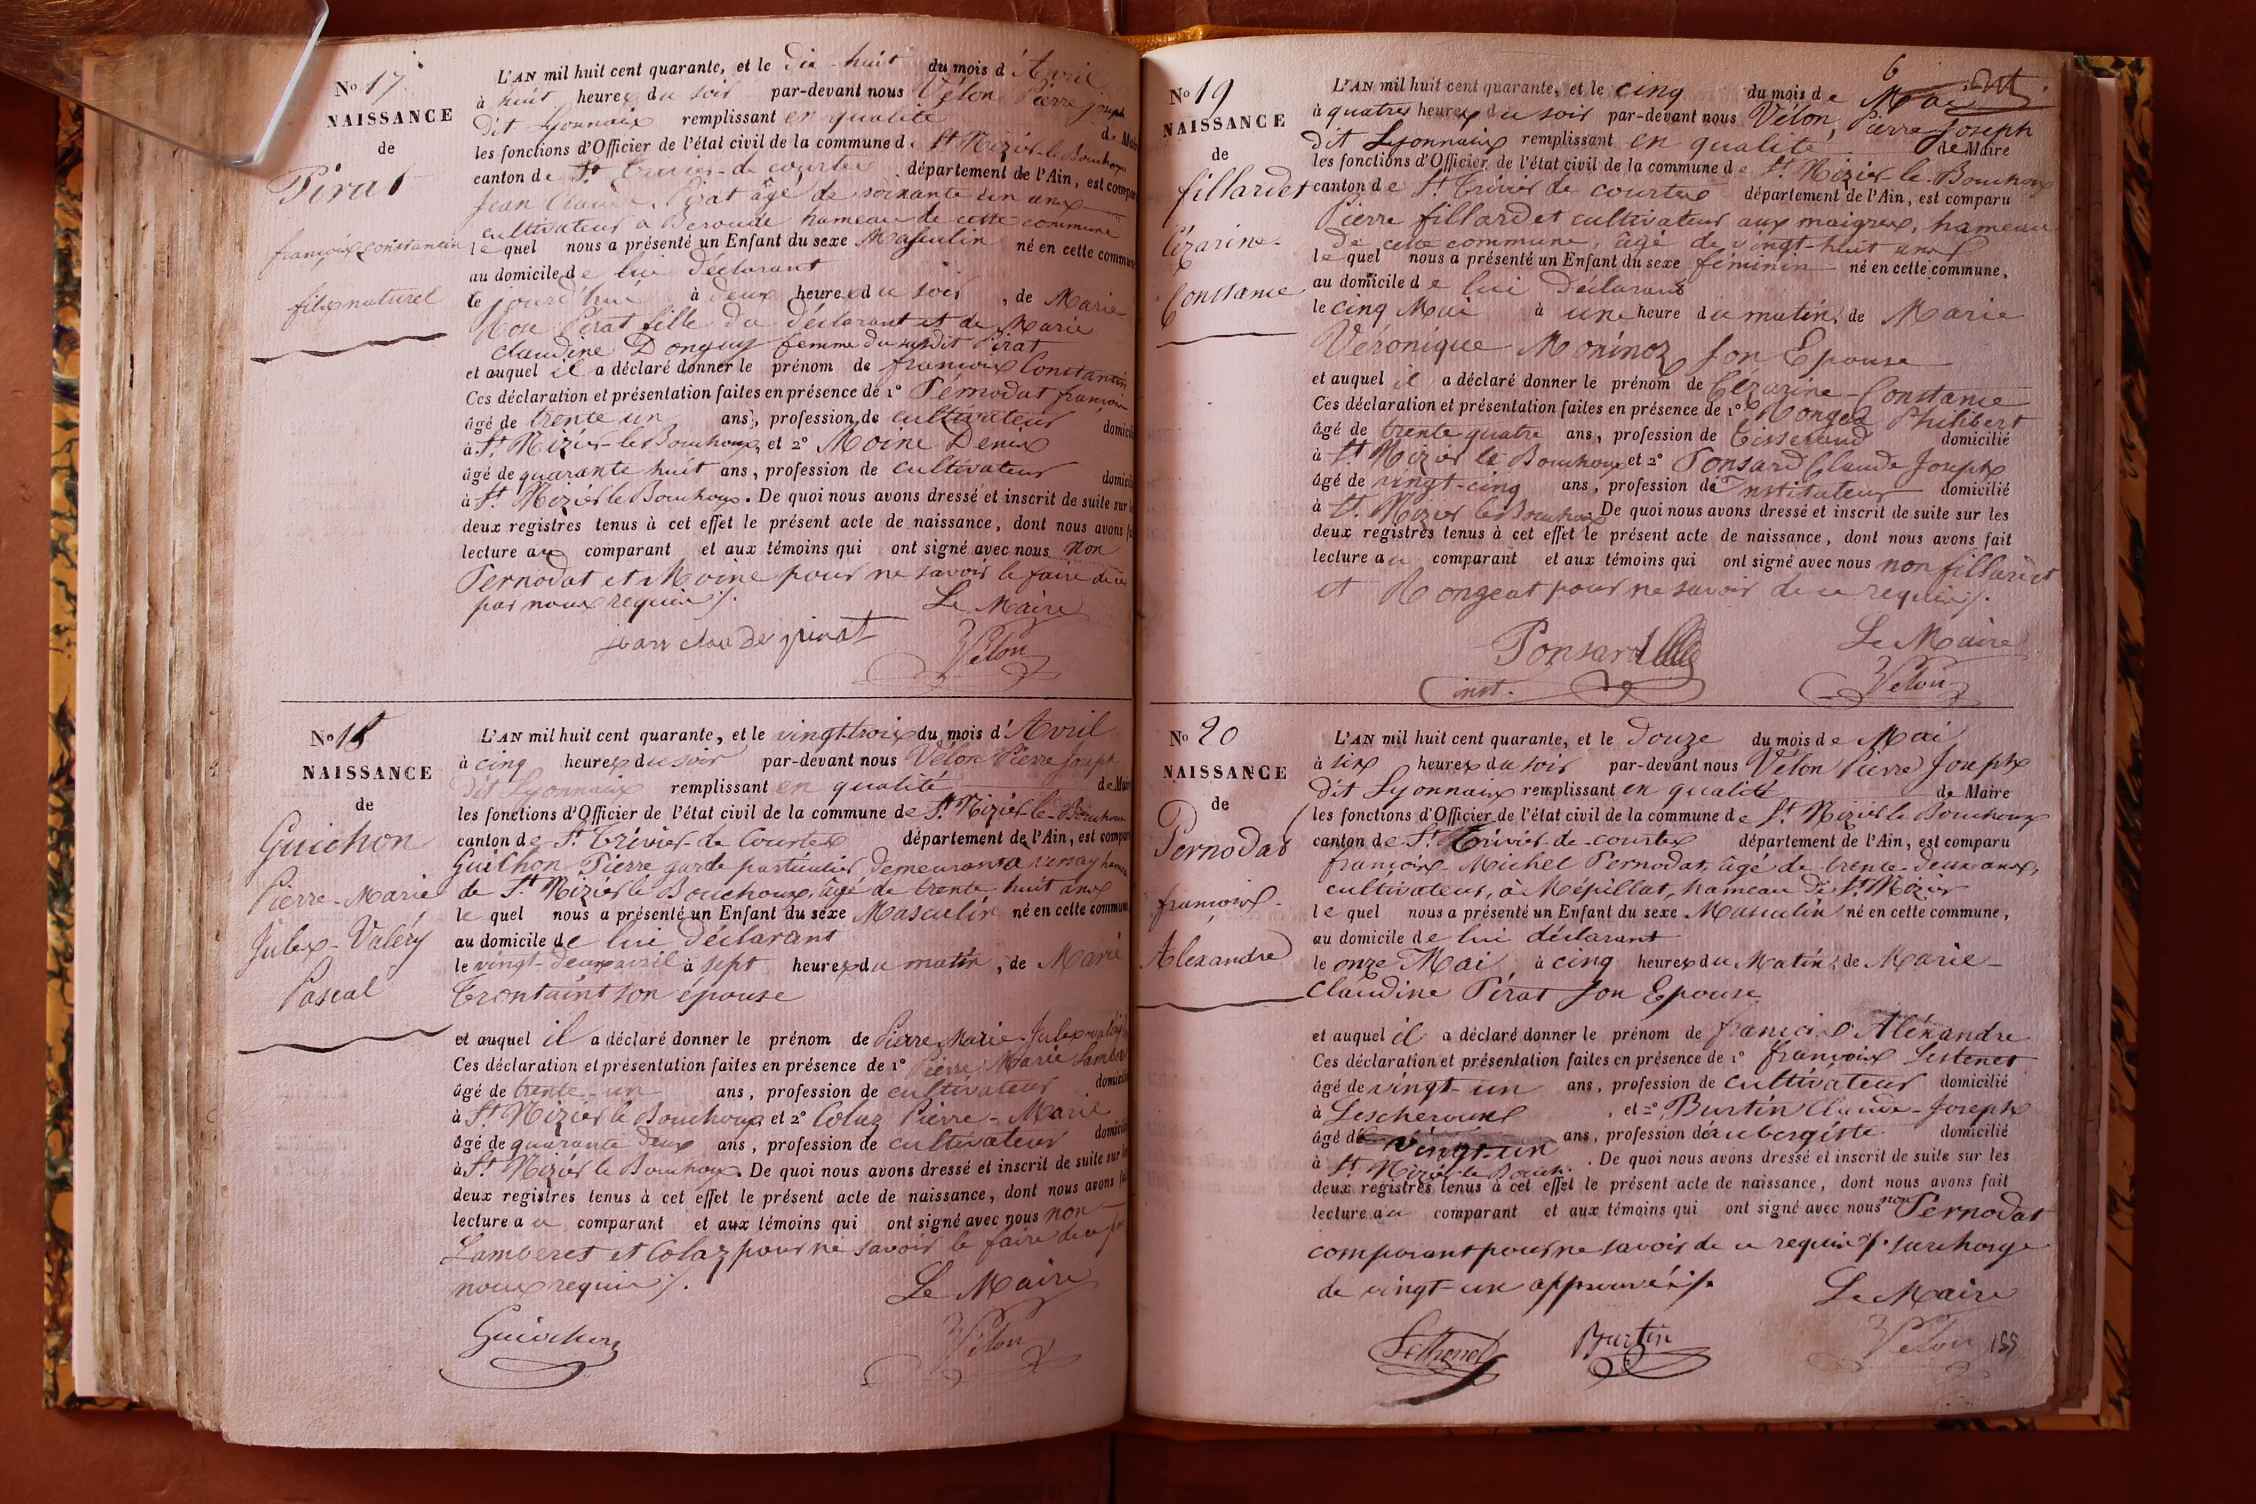 No 17
NAISSANCE
de
Pirat
françois constantin
fils naturel
L'AN mil huit cent quarante, et le dix-huit du mois d'Avril
à huit heures du soir par-devant nous Vélon Pierre joseph
dit Lyonnais remplissant en qualité de Maire
les fonctions d'Officier de l'état civil de la commune de St. Nizier-le-Bouchoux
canton de St. Trivier-de courtes département de l'Ain, est comparu
Jean Claude Pirat âgé de soixante un ans
cultivateur à Beroude hameau de cette commune
le quel nous a présenté un Enfant du sexe Masculin né en cette commune
au domicile de lui déclarant
le jourd'hui à deux heures du soir, de Marie
Rose Pirat fille du déclarant et de Marie
Claudine Donguy femme du susdit Pirat
et auquel il a déclaré donner le prénom de françois Constantin
Ces déclaration et présentation faites en présence de 1° Pernodat françois
âgé de trente un ans, profession de cultivateur domicilié
à St. Nizier-le-Bouchoux, et 2° Moine Denis
âgé de quarante huit ans, profession de cultivateur domicilié
à St. Nizier le Bouchoux. De quoi nous avons dressé et inscrit de suite sur les
deux registres tenus à cet effet le présent acte de naissance, dont nous avons fait
lecture au comparant et aux témoins qui ont signé avec nous Non
Pernodat et Moine pour ne savoir le faire de ce
par nous requis ./.
Le Maire
jean claude pirat Vélon
No 18
NAISSANCE
de
Guichon
Pierre-Marie
Jules-Valéry
Pascal
L'AN mil huit cent quarante, et le vingt-trois du mois d'Avril
à cinq heures du soir par-devant nous Vélon Pierre Joseph
dit Lyonnais remplissant en qualité de Maire
les fonctions d'Officier de l'état civil de la commune de St. Nizier-le-Bouchoux
canton de St. Trivier-de Courtes département de l'Ain, est comparu
Guichon Pierre garde particulier demeurant à vernay hameau
de St. Nizier le Bouchoux, âgé de trente-huit ans
le quel nous a présenté un Enfant du sexe Masculin né en cette commune
au domicile de lui déclarant
le vingt-deux avril à sept heures du matin, de Marie
Trontaint son épouse
et auquel il a déclaré donner le prénom de Pierre Marie Jules
Ces déclaration et présentation faites en présence de 1° Pierre Marie Lamberet
âgé de trente-un ans, profession de cultivateur domicilié
à St. Nizier le Bouchoux et 2° Colaz Pierre-Marie
âgé de quarante deux ans, profession de cultivateur domicilié
à St. Nizier le Bouchoux. De quoi nous avons dressé et inscrit de suite sur les
deux registres tenus à cet effet le présent acte de naissance, dont nous avons fait
lecture au comparant et aux témoins qui ont signé avec nous non
Lamberet et Colaz pour ne savoir le faire de ce par
nous requis ./.
Le Maire
Guichon Vélon
6
No 19
NAISSANCE
de
fillardet
Cézarine-
Constance
L'AN mil huit cent quarante, et le cinq du mois de Mai
à quatre heures du soir par-devant nous Vélon, Pierre Joseph
dit Lyonnais remplissant en qualité de Maire
les fonctions d'Officier de l'état civil de la commune de St. Nizier le Bouchoux
canton de St. Trivier de courtes département de l'Ain, est comparu
Pierre fillardet cultivateur aux maigres, hameau
de cette commune, âgé de vingt-huit ans
le quel nous a présenté un Enfant du sexe féminin né en cette commune,
au domicile de lui déclarant
le cinq Mai à une heure du matin, de Marie
Véronique Moninoz son Epouse
et auquel il a déclaré donner le prénom de Cézarine-Constance
Ces déclaration et présentation faites en présence de 1° Rongeat Philibert
âgé de trente quatre ans, profession de tisserand domicilié
à St. Nizier le Bouchoux et 2° Ponsard Claude Joseph
âgé de vingt-cinq ans, profession de Instituteur domicilié
à St. Nizier le Bouchoux De quoi nous avons dressé et inscrit de suite sur les
deux registres tenus à cet effet le présent acte de naissance, dont nous avons fait
lecture au comparant et aux témoins qui ont signé avec nous non fillardet
et Rongeat pour ne savoir de ce requis ./.
Le Maire
Ponsard inst. Vélon
No 20
NAISSANCE
de
Pernodat
françois-
Alexandre
L'AN mil huit cent quarante, et le douze du mois de Mai
à six heures du soir par-devant nous Vélon Pierre Joseph
dit Lyonnais remplissant en qualité de Maire
les fonctions d'Officier de l'état civil de la commune de St. Nizier le Bouchoux
canton de St. Trivier-de-courtes département de l'Ain, est comparu
françois-Michel Pernodat, âgé de trente-deux ans,
cultivateur, à Mépillat, hameau de St. Nizier
le quel nous a présenté un Enfant du sexe Masculin né en cette commune,
au domicile de lui déclarant
le onze Mai, à cinq heures du Matin, de Marie-
Claudine Pirat son Epouse
et auquel il a déclaré donner le prénom de françois Aléxandre
Ces déclaration et présentation faites en présence de 1° françois
âgé de vingt-un ans, profession de cultivateur domicilié
à Lescheroux, et 2° Burtin Claude-Joseph
âgé de vingt-un ans, profession d'aubergiste domicilié
à St. Nizier-le-Bouch. De quoi nous avons dressé et inscrit de suite sur les
deux registres tenus à cet effet le présent acte de naissance, dont nous avons fait
lecture au comparant et aux témoins qui ont signé avec nous non Pernodat
comparant pour ne savoir de ce requis ./. surcharge
de vingt-un approuvée ./.
Le Maire
Burtin Vélon